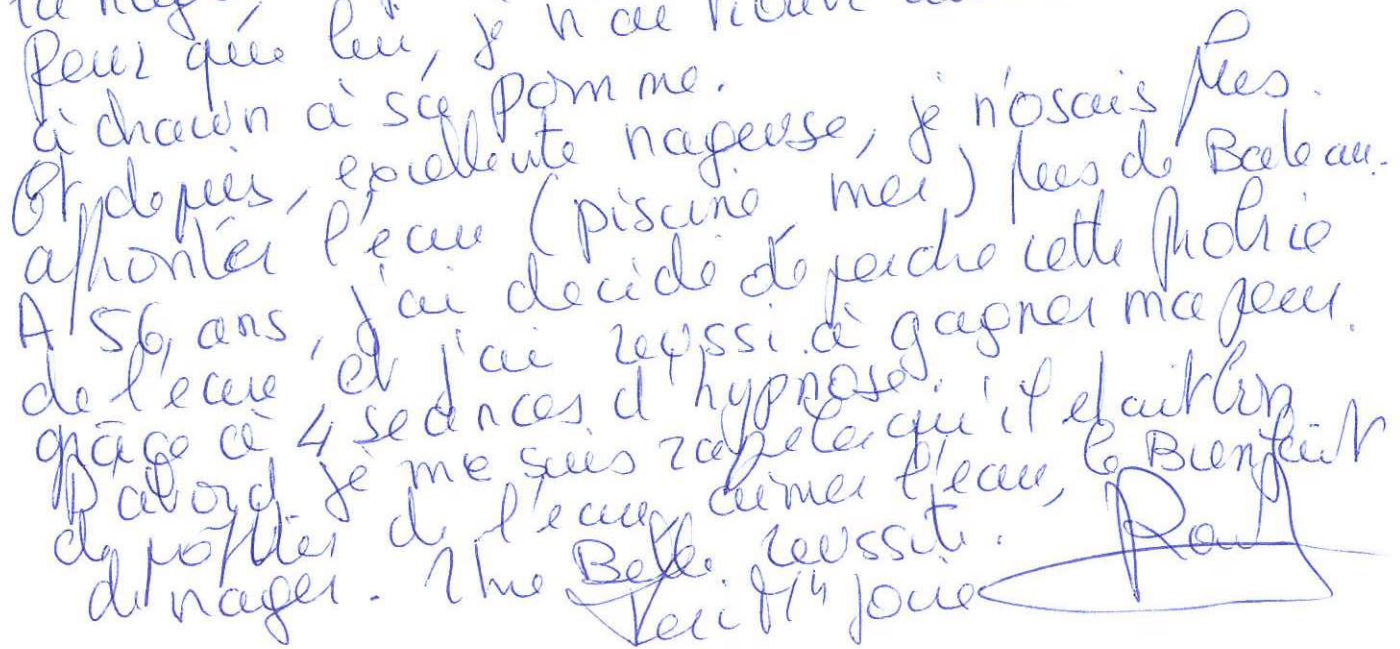 la nage
peur que lui, je n'ai
à chacun à sa pomme.
Et depuis, excellente nageuse, je n'osais plus
affronter l'eau (piscine, mer) plus de Bateau.
A 56 ans, j'ai décidé de perdre cette phobie
de l'eau et j'ai reussi à gagner ma peur.
grâce à 4 seances d'hypnose.
D'abord je me suis rapeler qu'il etait bon
de profiter de l'eau, aimer l'eau, le Bienfait
de nager. Une Belle reussite.